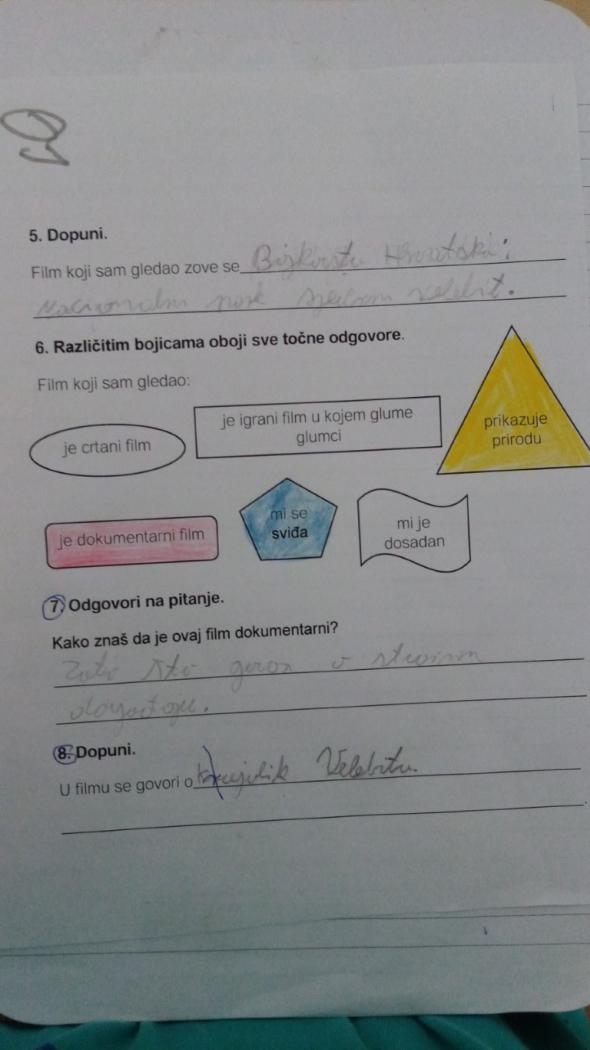 5. Dopuni.
Film koji sam gledao zove se Hrvatske:
Nacionalni park Velebit.
6. Različitim bojicama oboji sve točne odgovore.
Film koji sam gledao:
je crtani film
je igrani film u kojem glume
glumci
prikazuje
prirodu
je dokumentarni film
mi se
sviđa
mi je
dosadan
7. Odgovori na pitanje.
Kako znaš da je ovaj film dokumentarni?
Zato što o
8. Dopuni.
U filmu se govori o Velebitu.